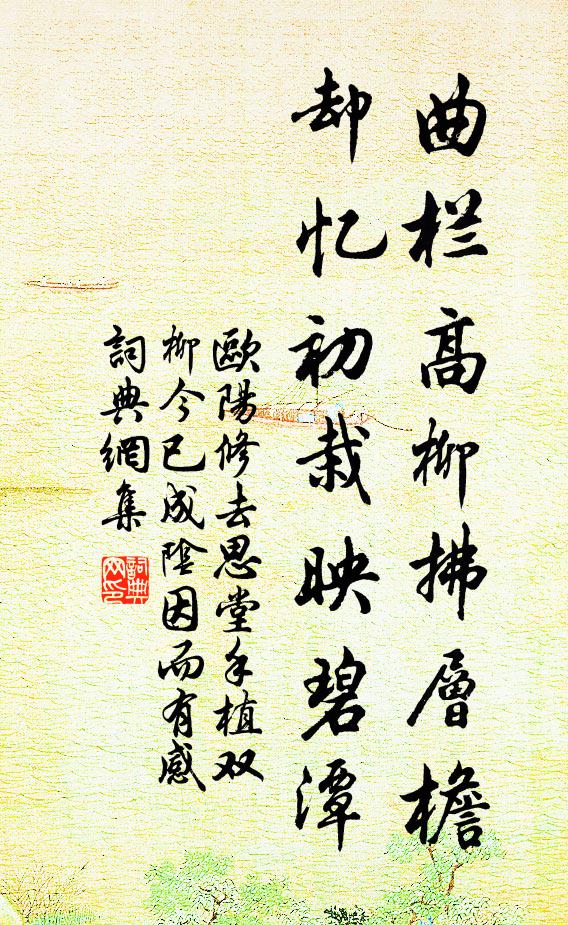 曲栏高柳拂層檐
却忆初栽映碧潭
歐陽修去思堂手植双
柳今已成陰因而有感
詞典網集
詞典
网印